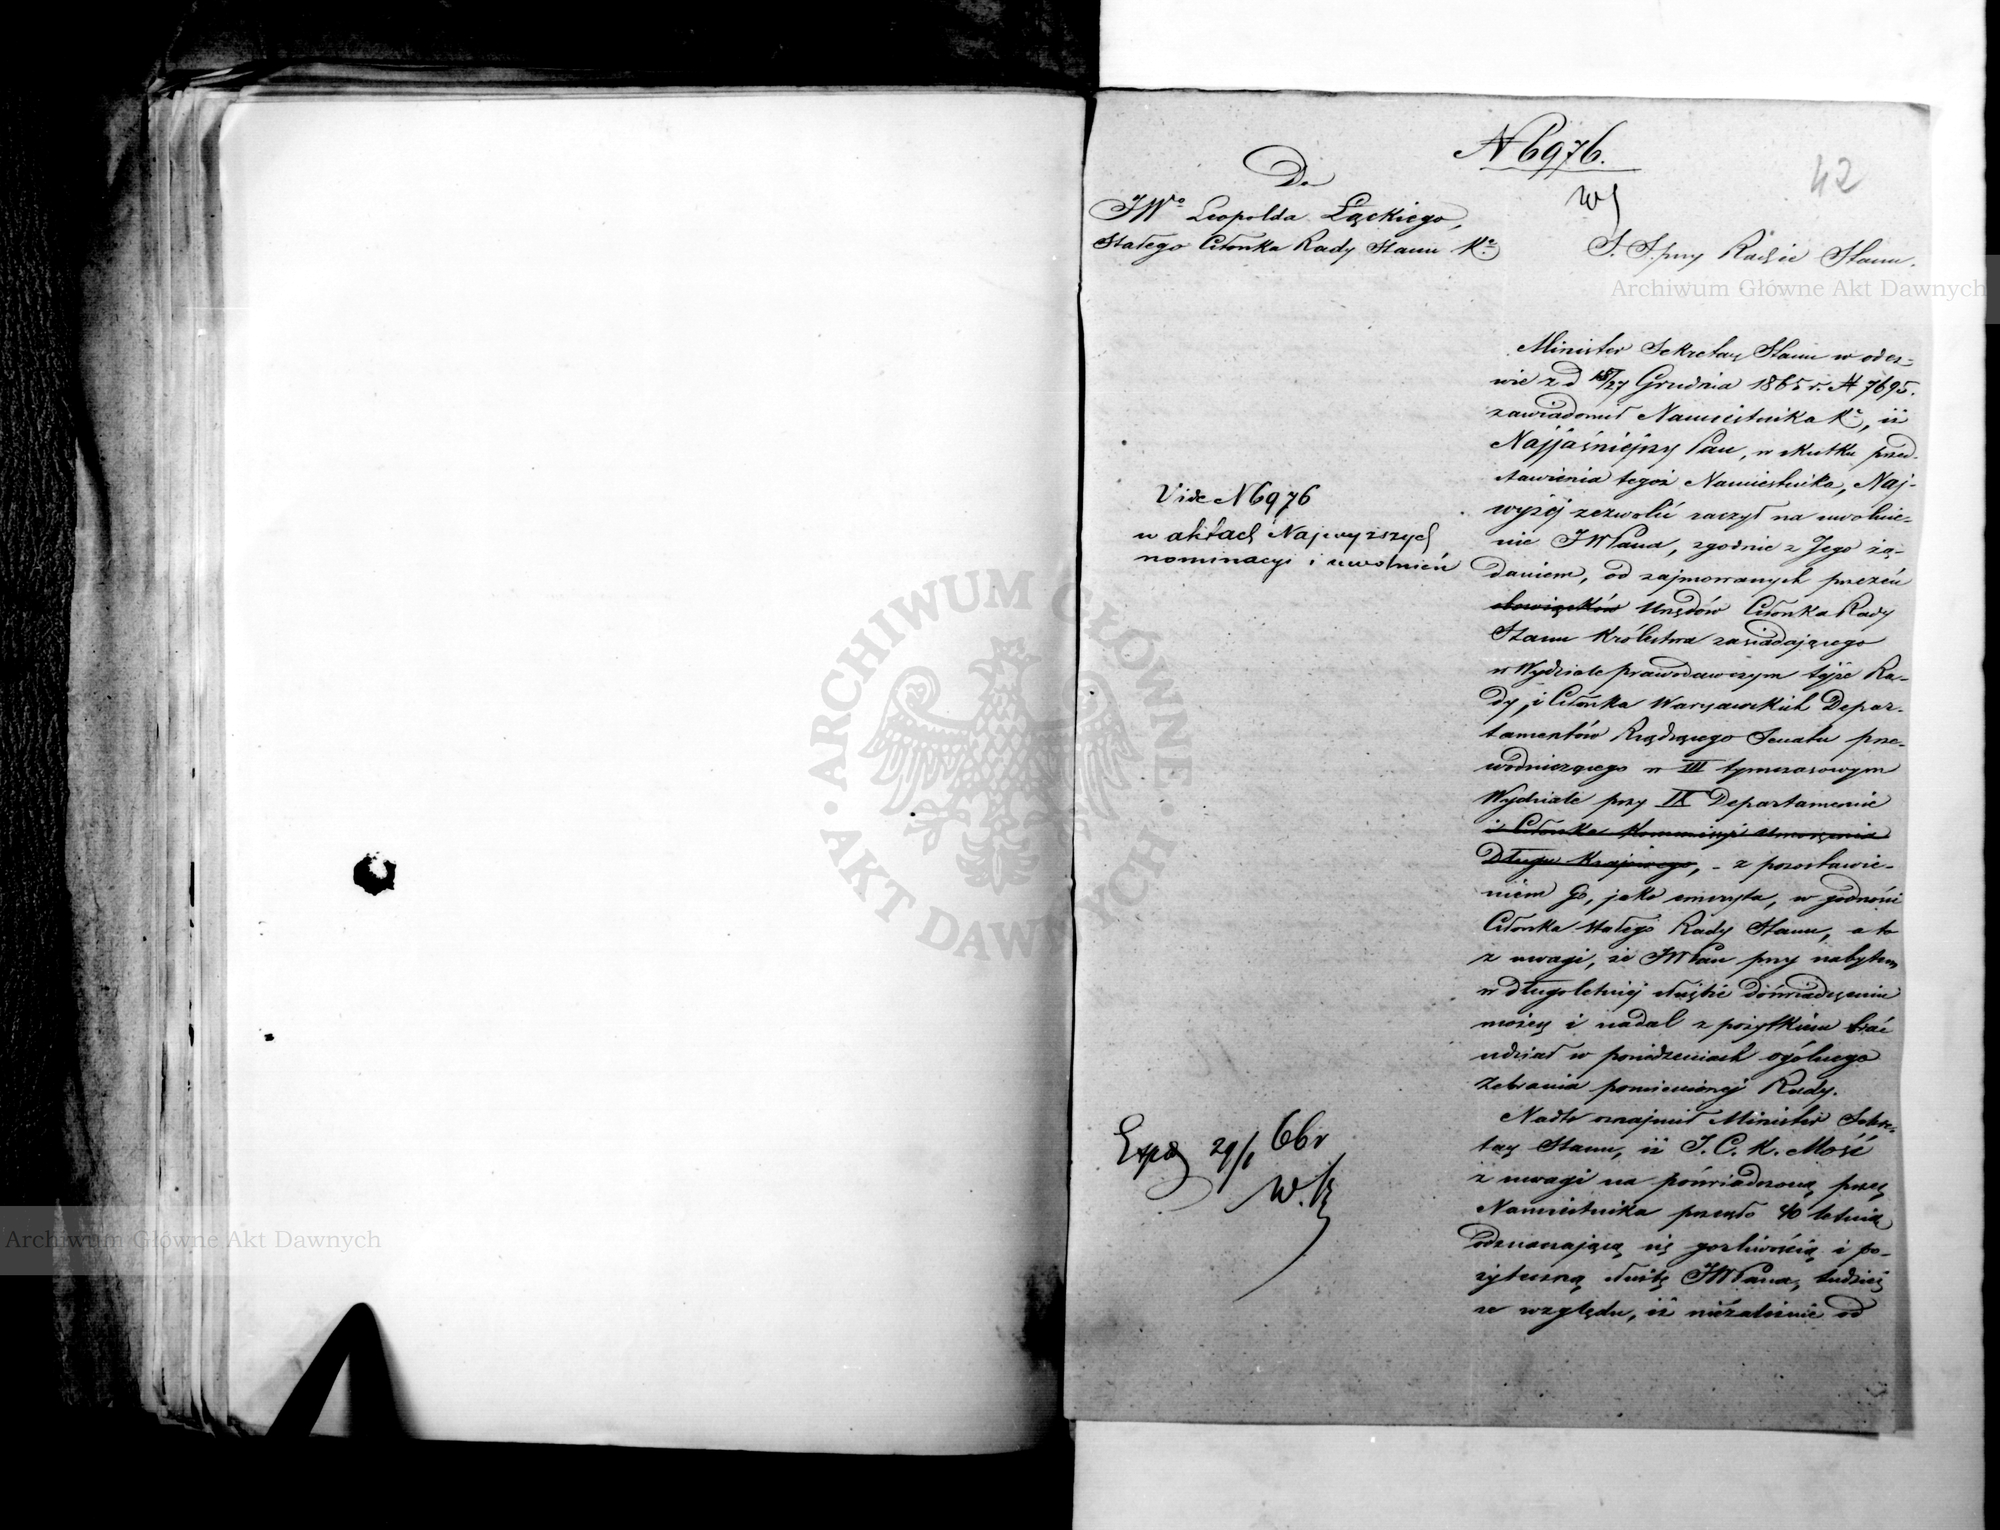 N 6976.
42
Do
JWo Leopolda Łąckiego,
Stałego Członka Rady Stanu Ka
S. S. przy Radzie Stanu.
Archiwum Główne Akt Dawnych
Minister Sekretarz Stanu w odez-
wie z d 15/27 Grudnia 1865 r. N 7695.
zawiadomił Namiestnika Ka, iż
Najjaśniejszy Pan, w skutku przed-
stawienia tegoż Namiestnika, Naj-
wyżej zezwolić raczył na uwolnie-
nie JWPana, zgodnie z Jego żą-
daniem, od zajmowanych przezeń
obowiązków Urzędów Członka Rady
Stanu Królestwa zasiadającego
w Wydziale prawodawczym tejże Ra-
dy, i Członka Warszawskich Depar-
tamentów Rządzącego Senatu prze-
wodniczącego w III tymczasowym
Wydziale przy IX Departamencie
i Członka Kommissyi Umorzenia
Długu Krajowego, - z pozostawie-
niem Go, jako emeryta, w godności
Członka stałego Rady Stanu, a to
z uwagi, że JWPan przy nabytem
w długoletniej służbie doświadczeniu
możesz i nadal z pożytkiem brać
udział w posiedzeniach ogólnego
Zebrania pomienionej Rady.
Nadto oznajmił Minister Sekre-
tarz Stanu, iż J. C. K. Mość
z uwagi na poświadczoną przez
Namiestnika przeszło 40 letnią
odznaczającą się gorliwością i po-
żyteczną służbę JWPana, tudzież
ze względu, iż niezależnie od
Vide N 6976
w aktach Najwyższych
nominacyi i uwolnień
Exp 29/1 66 r
W.
ARCHIWUM GŁÓWNE · AKT DAWNYCH ·
Archiwum Główne Akt Dawnych